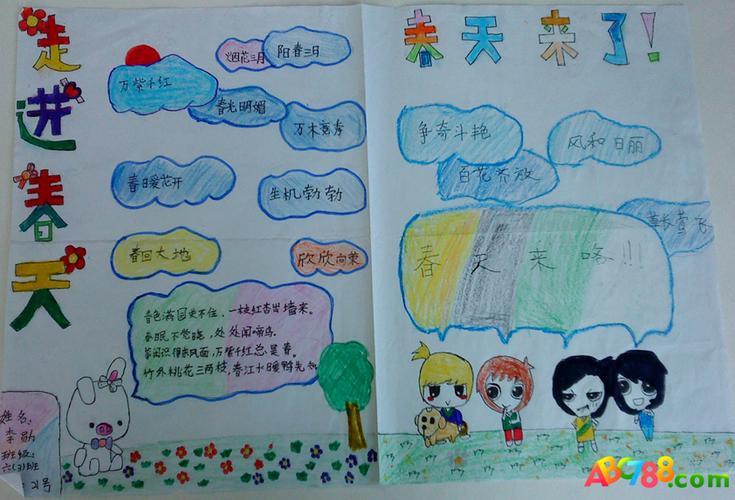 走进春天
烟花三月
阳春三月
万紫千红
春光明媚
万木竞秀
春日暖花开
生机勃勃
春回大地
欣欣向荣
春色满园关不住，一枝红杏出墙来。
春眠不觉晓，处处闻啼鸟。
等闲识得东风面，万紫千红总是春。
竹外桃花三两枝，春江水暖鸭先知
姓名:
李勋
班级:
六(3)班
21号
春天来了!
争奇斗艳
风和日丽
百花齐放
草长莺飞
春天来咯!!!
ABC788.com